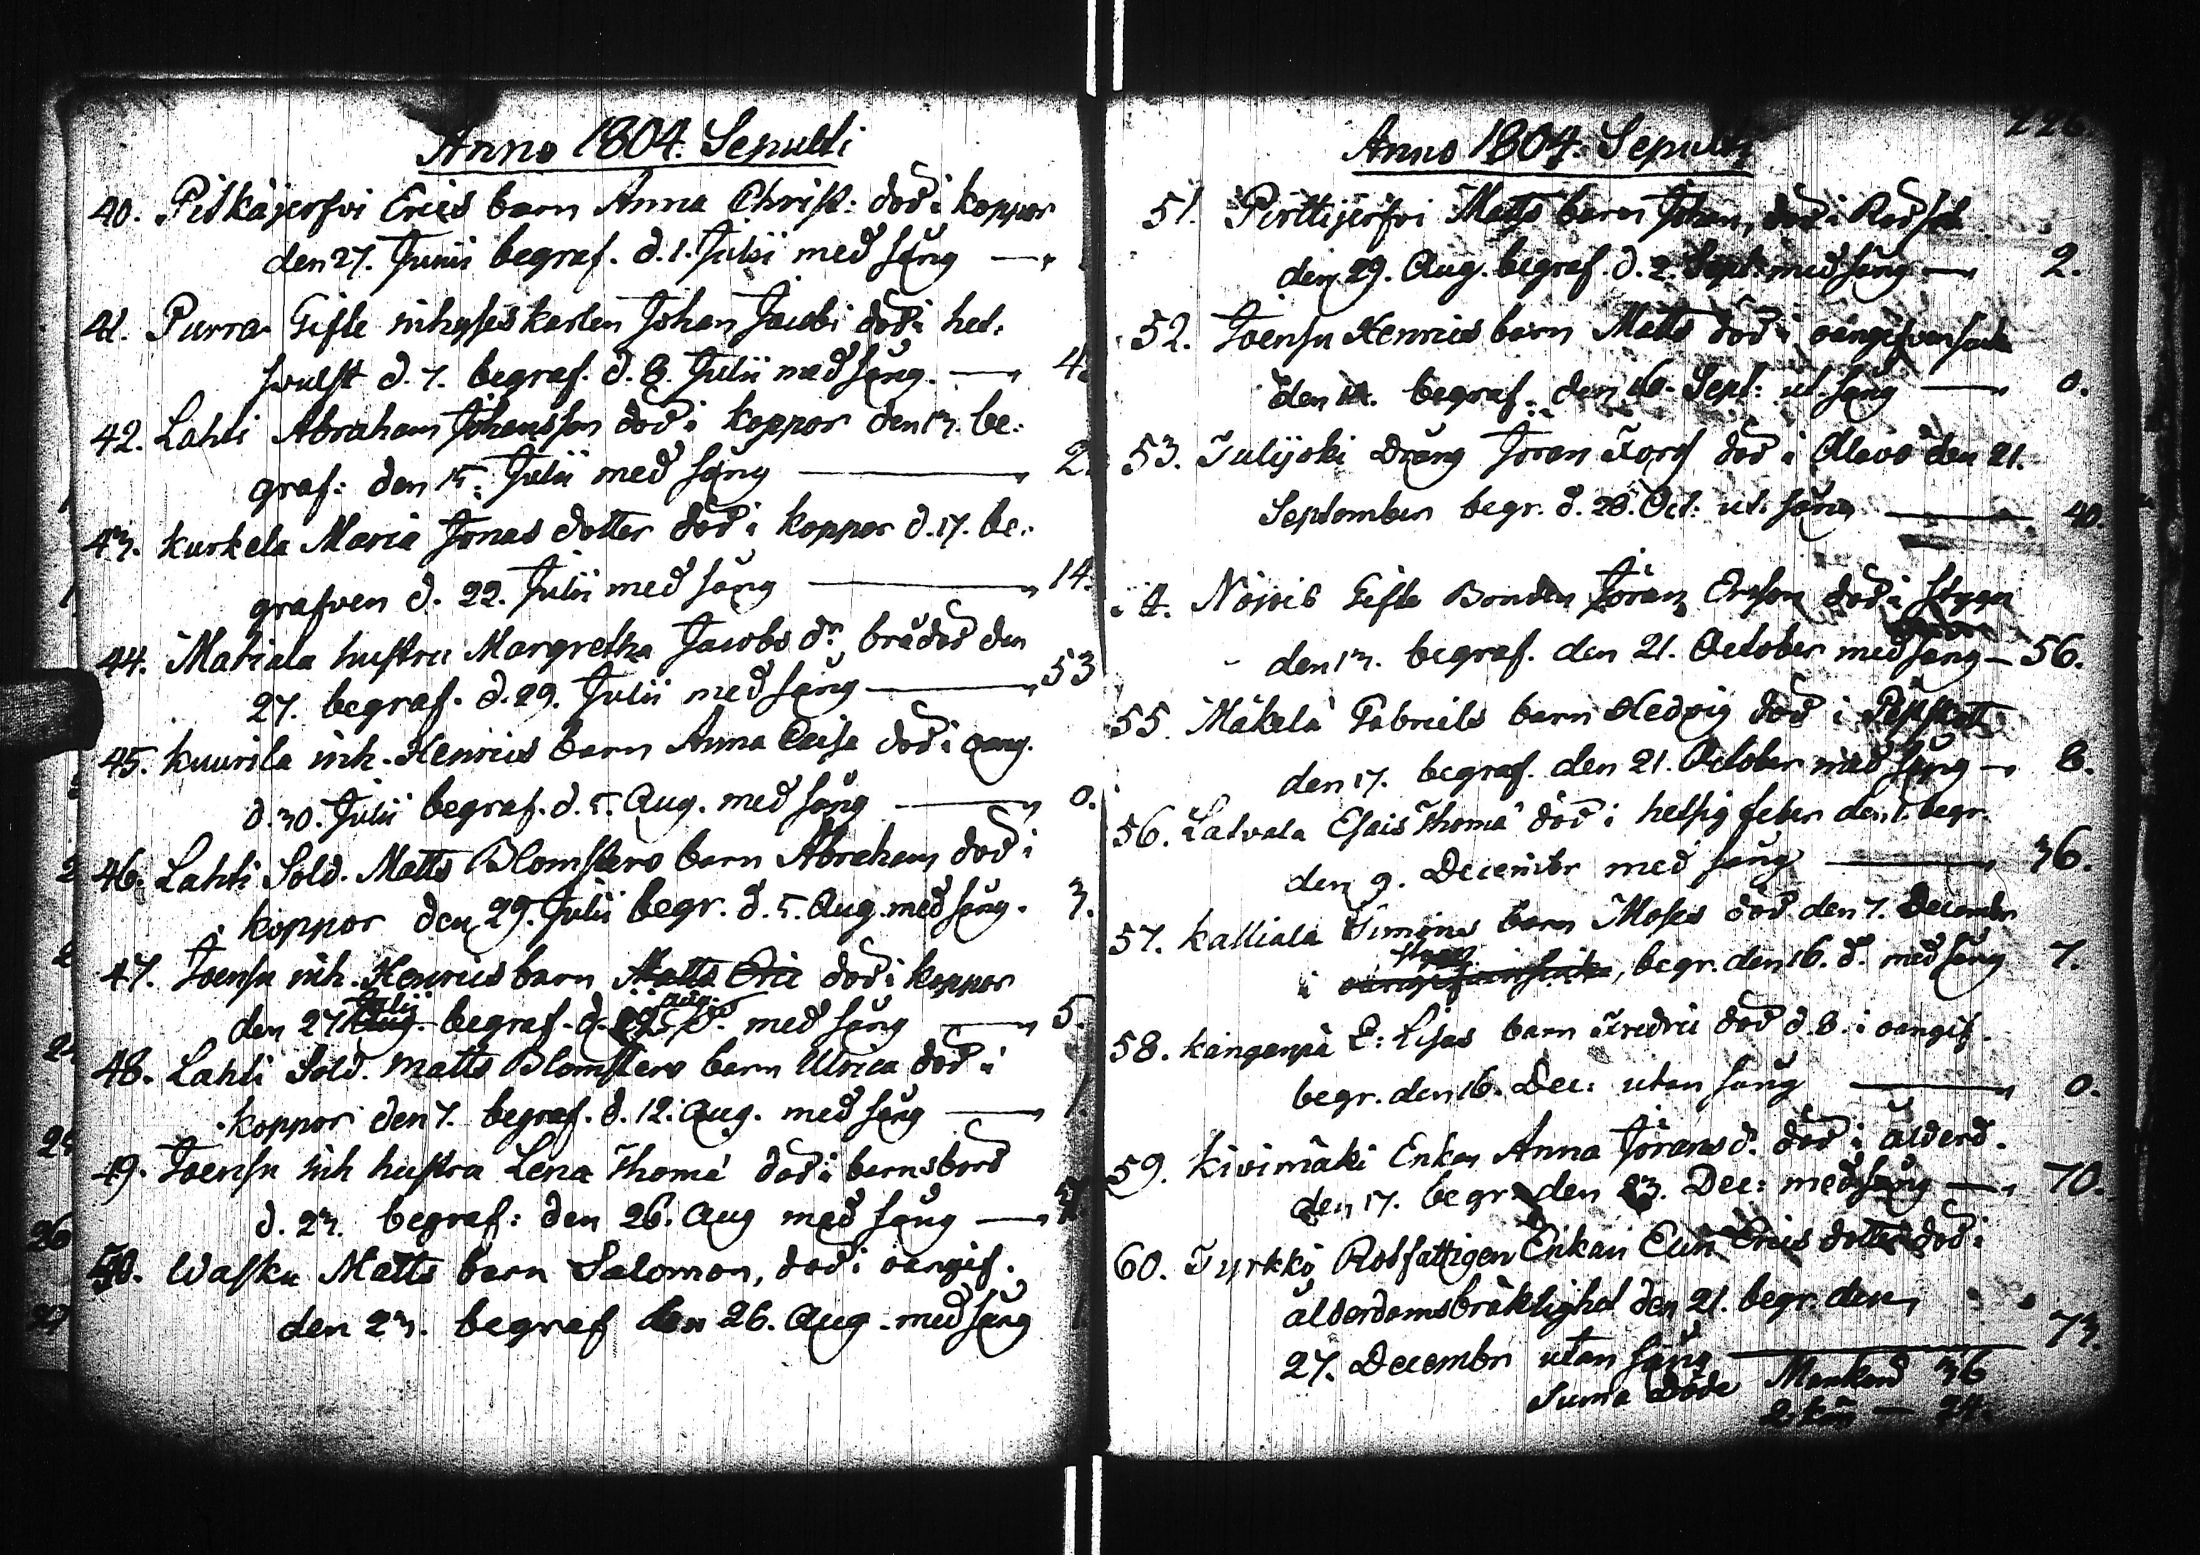 Anno 1804. Sepulti
40. Pitkäjerfvi Erics barn Anna Christ: dod i koppor
den 27. Junii begraf. d. 1. Julii med sång
41. Purra Gifte inhyseskarlen Johan Jacobi dod i het:
svulst d. 7. begraf. d. 8. Julii med sång. 4
42. Lahti Abraham Johansson dod i koppor den 13. be:
graf: den 15. Julii med sång 2.
43. Kurkela Maria Jonas dotter dod i koppor d. 17. be:
grafven d. 22. Julii med sång 14.
44. Matiala hustru Margretha Jacobs dr brådod den
27. begraf. d. 29. Julii med sång 53
45. Kuurila inh. Henrics barn Anna Caisa dod i oang.
d. 30. Julii begraf. d. 5. Aug. med sång 0.
46. Lahti Sold. Matts Blomsters barn Abraham dod i
koppor den 29. Julii begr. d. 5. Aug. med sång. 3.
47. Joensu inh. Henrics barn Matts Eric dod i koppor
den 27 Julii Aug. begraf. d. 5 Aug. med sång 5.
48. Lahti Sold. Matts Blomsters barn Ulrica dod i
koppor den 7. begraf. d. 12. Aug. med sång 1.
49. Joensu inh hustru Lena Thomæ dod i barnsbord
d. 23. begraf: den 26. Aug med sång
50. Wasku Matts barn Salomon, dod i oangif.
den 23. begraf den 26. Aug. med sång
226.
Anno 1804. Sepulti
51. Pirttijerfvi Matts barn Johan, dod i Rodsot
den 29. Aug. begraf. d. 2. Sept. med sång 2.
52. Joensu Henrics barn Matts dod i oangifven
den 14. begraf. den 16. Sept: ut. sång 0.
53. Julijoki Dräng Jöran dod i Alavo den 21.
September begr. d. 28. Oct: ut. sång 40.
54. Gifte Bonden Jöran Ersson dod i styng
den 13. begraf. den 21. October med sång 56.
55. Mäkelä Gabriels barn Hedvig dod i
den 17. begraf. den 21. October med sång 8.
56. Latvala Esais Thomæ död i hetsig feber den 1. begr.
den 9. Decembr med sång 36.
57. Kalliala Simons barn Moses dod den 7. Decembr
i styng oangifvensiuka, begr. den 16. d. med sång 7.
58. Kangenpä E: Lisas barn Fredric dod d. 8. i oangif.
begr. den 16. Dec: utan sång 0.
59. Kivimäki Enkan Anna Jörans d. dod i ålderd.
den 17. begr. den 23. Dec: med sång 70.
60. Jyrkkö Rotfattigen Enkan Elin Erics dotter dod i
ålderdomsbräklighet den 21. begr. den
27. Decembr utan sång 73.
Suma Döde Mankönd 36
Q. kön — 24.